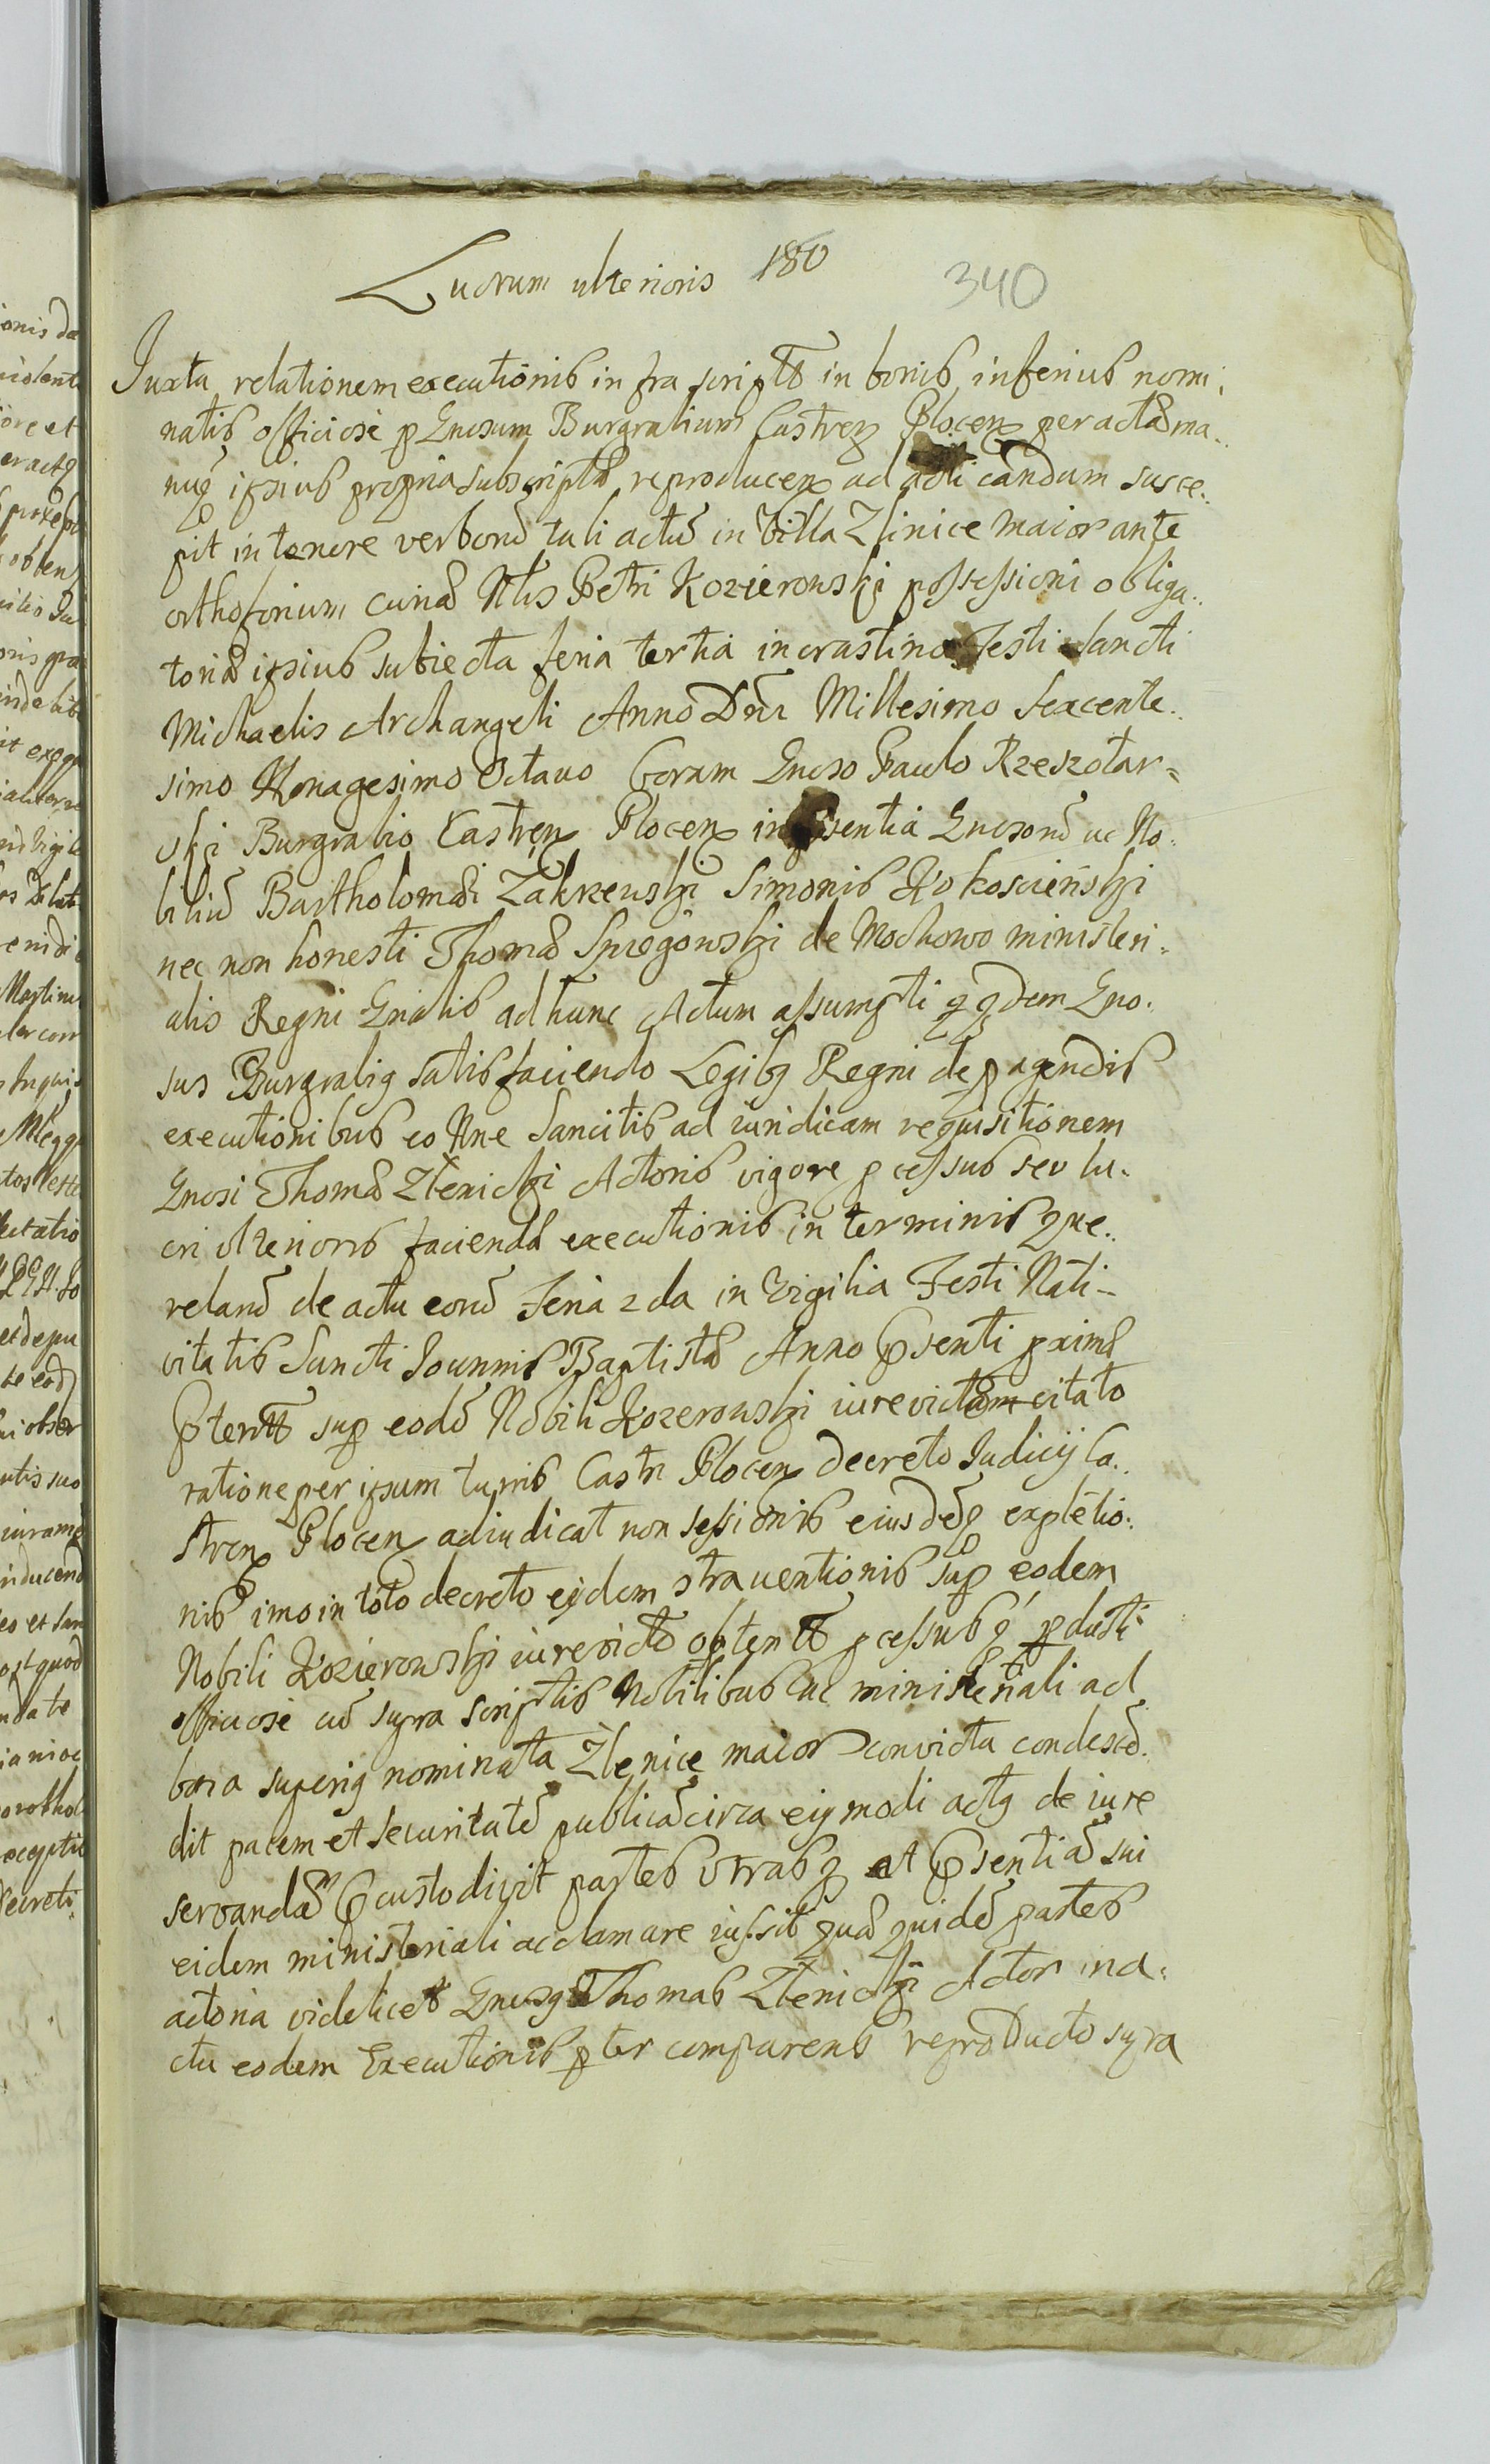 Lucrum ulterioris 180
340
Juxta relationem executionis infra script in bonis inferius nomi
natis officiose p Gnosum Burgrabium Castren Plocen peractæ ma..
nuq ipsius propria subscriptæ reproducen ad acticandum susce..
pit in tenore verborū tali actū in Villa Zlinice maior ante
orthoforium curiæ Nlis Petri Kozierowski possessioni obliga..
toriæ ipsius subiecta feria tertia in crastino Festi Sancti
Michaelis Archangeli Anno Dni Millesimo Sexcente..
simo Nonagesimo Octauo Coram Gnoso Paulo Rzeszotar=
ski Burgrabio Castren Plocen in psentia Gnosorū ac No.
biliū Bartholomæi Zakrzewski Simonis Kokoscieński
nec non honesti Thomæ de Mochowo ministeri=
alis Regni Gnalis ad hunc Actum assumpti q qdem Gno.
sus Burgrabiq satisfaciendo Legibq Regni de pagendis
executionibus eo Nne Sancitis ad iuridicam requisitionem
Gnosi Thomæ Zlenicki Actoris vigore pcessus seu lu.
cri ulterioris faciendæ executionis in terminis que..
relarū de actu eorū Feria 2da in Vigilia Festi Nati-
vitatis Sancti Joannis Baptistæ Anno psenti
sup eodē Nobili Kozerowski iurevictam citato
ratione per ipsum turris Castri Plocen decreto Judicij Ca..
stren Plocen adiudicat non sessionis eiusdēq expletio.
nis imo in toto decreto eijdem ɔtrauentionis sup eodem
Nobili Kozierowski iurevicto obtent pcessusq
officiose cū supra scriptis Nobilibus ac ministeriali ad
bona superiq nominata Zlenice maior convicta condescē.
dit pacem et securitatē publicā circa eijmodi actq de iure
servandā pcustodivit partes vtrasq et psentiā sui
eidem ministeriali acclamare iussit quā quidē partes
actoria videlicet Gnosq Thomas Zlenicki Actor in a=
ctu eodem Executionis pter comparens reproducto supra